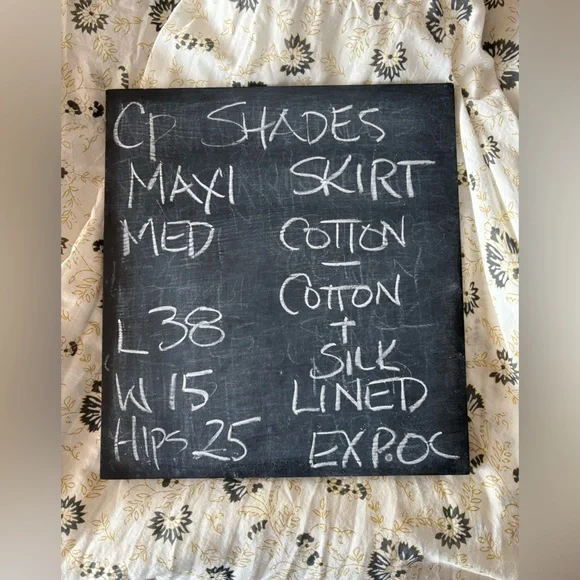 Cp SHADES
MAXI SKIRT
MED
COTTON
-
COTTON
+
SILK
LINED
L 38
W 15
Hips 25
EXP.OC